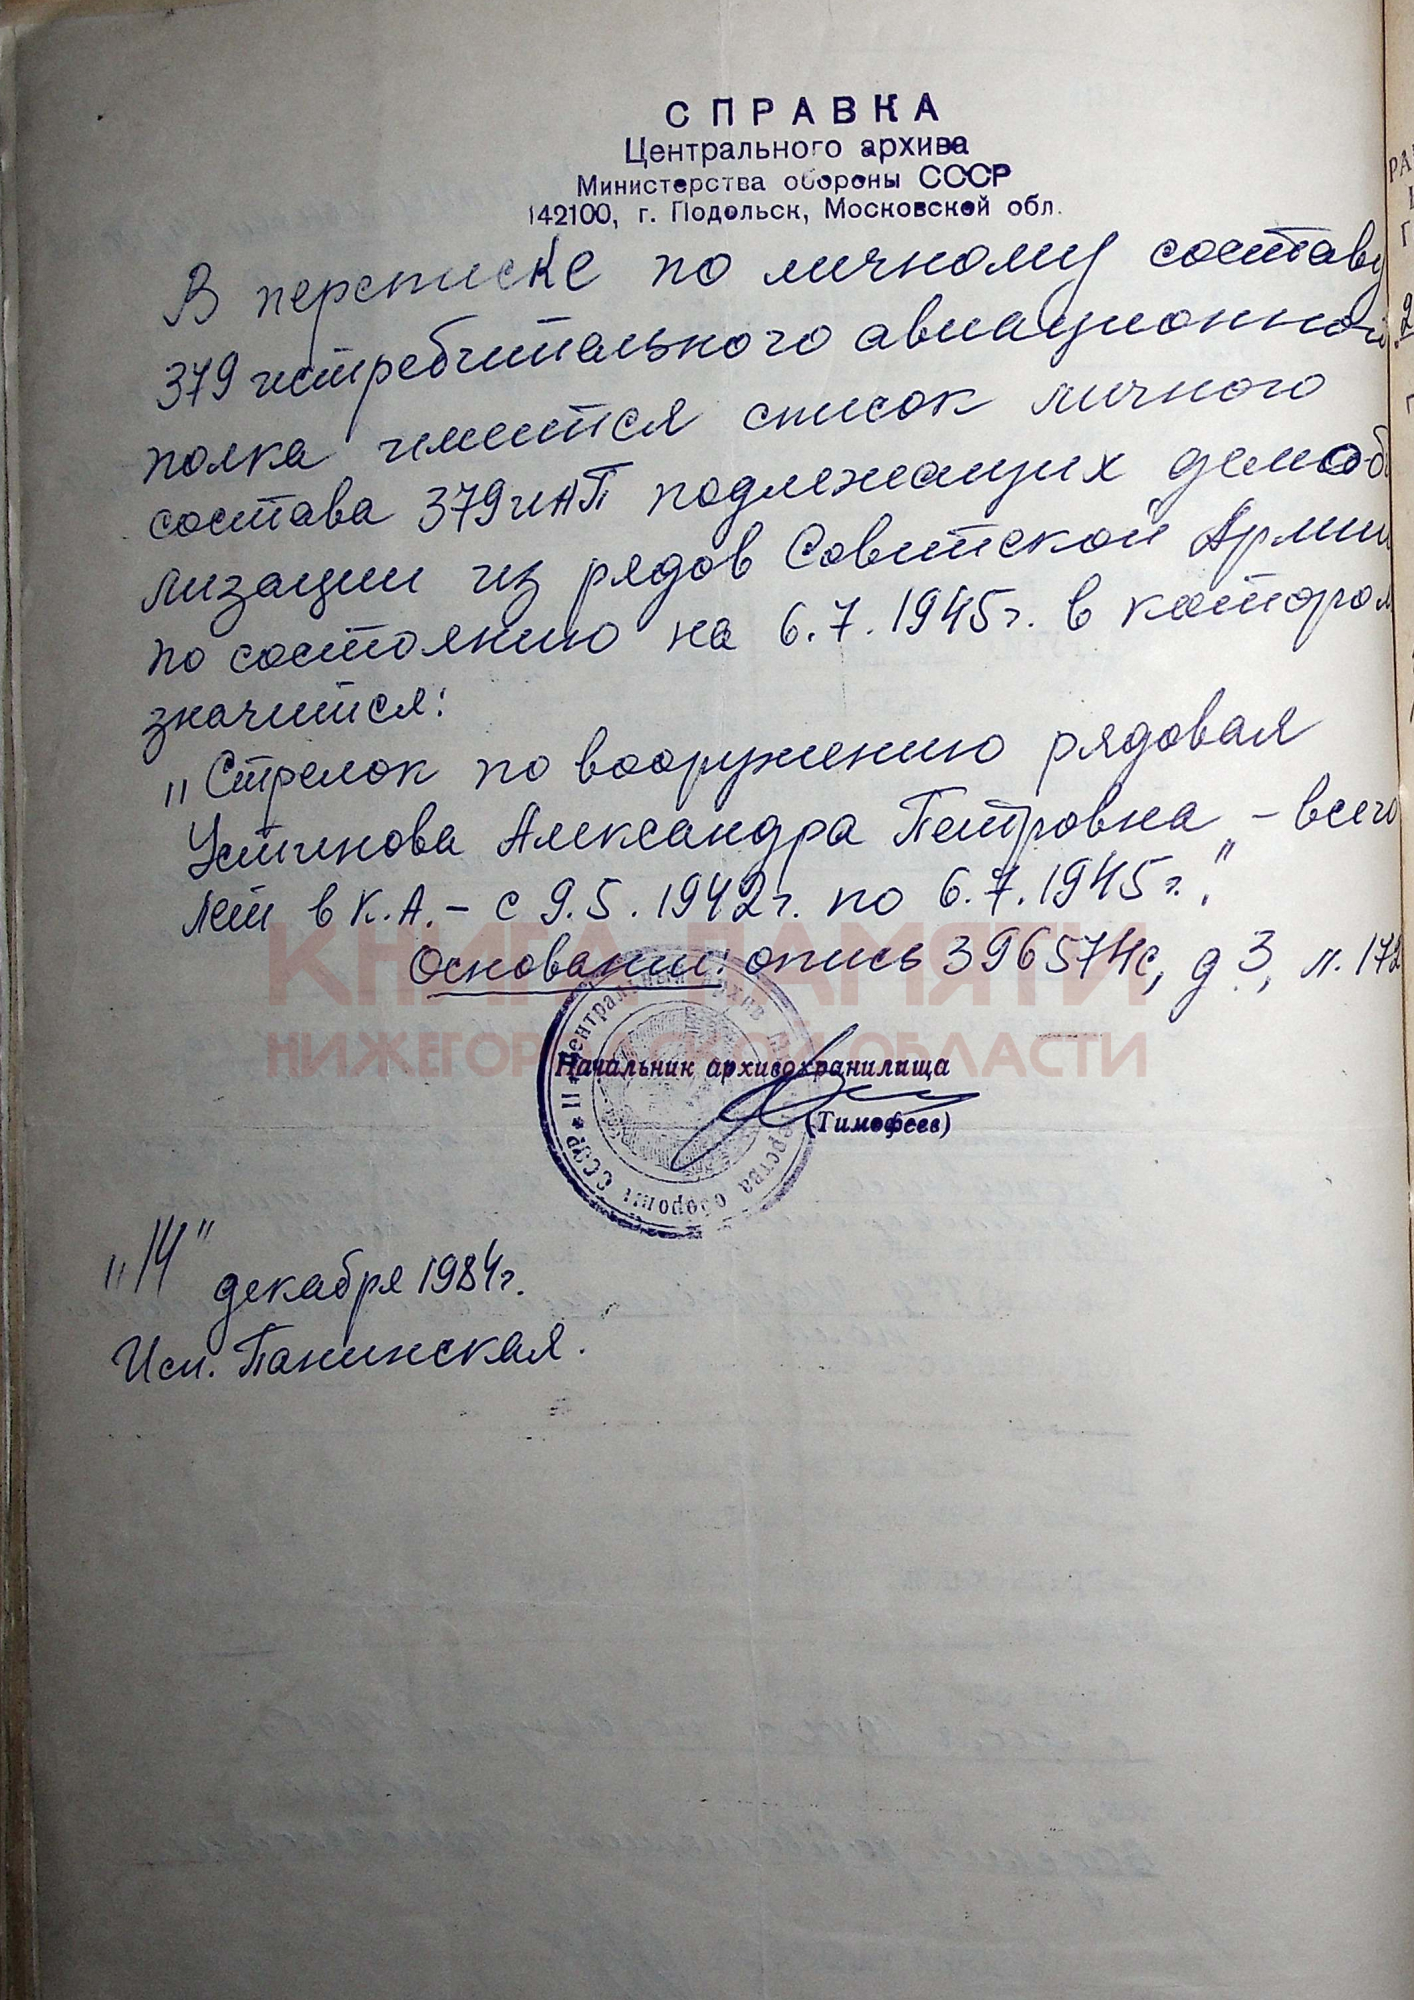 СПРАВКА
Центрального архива
Министерства обороны СССР
142100, г. Подольск, Московской обл.
В переписке по личному составу
379 истребительного авиационного
полка имеется список личного
состава 379 иАП подлежащих демоби
лизации из рядов Советской Армии
по состоянию на 6.7.1945г. в котором
значится:
„Стрелок по вооружению рядовая
Устинова Александра Петровна - всего
лет в К.А. - с 9.5.1942г. по 6.7.1945г."
Основание: опись 396574с, д 3, л. 172
КНИГА ПАМЯТИ
НИЖЕГОРОДСКОЙ ОБЛАСТИ
Центральный архив Министерства обороны СССР * II *
Начальник архивохранилища
(Тимофеев)
„14" декабря 1984г.
Исп. Панинская.